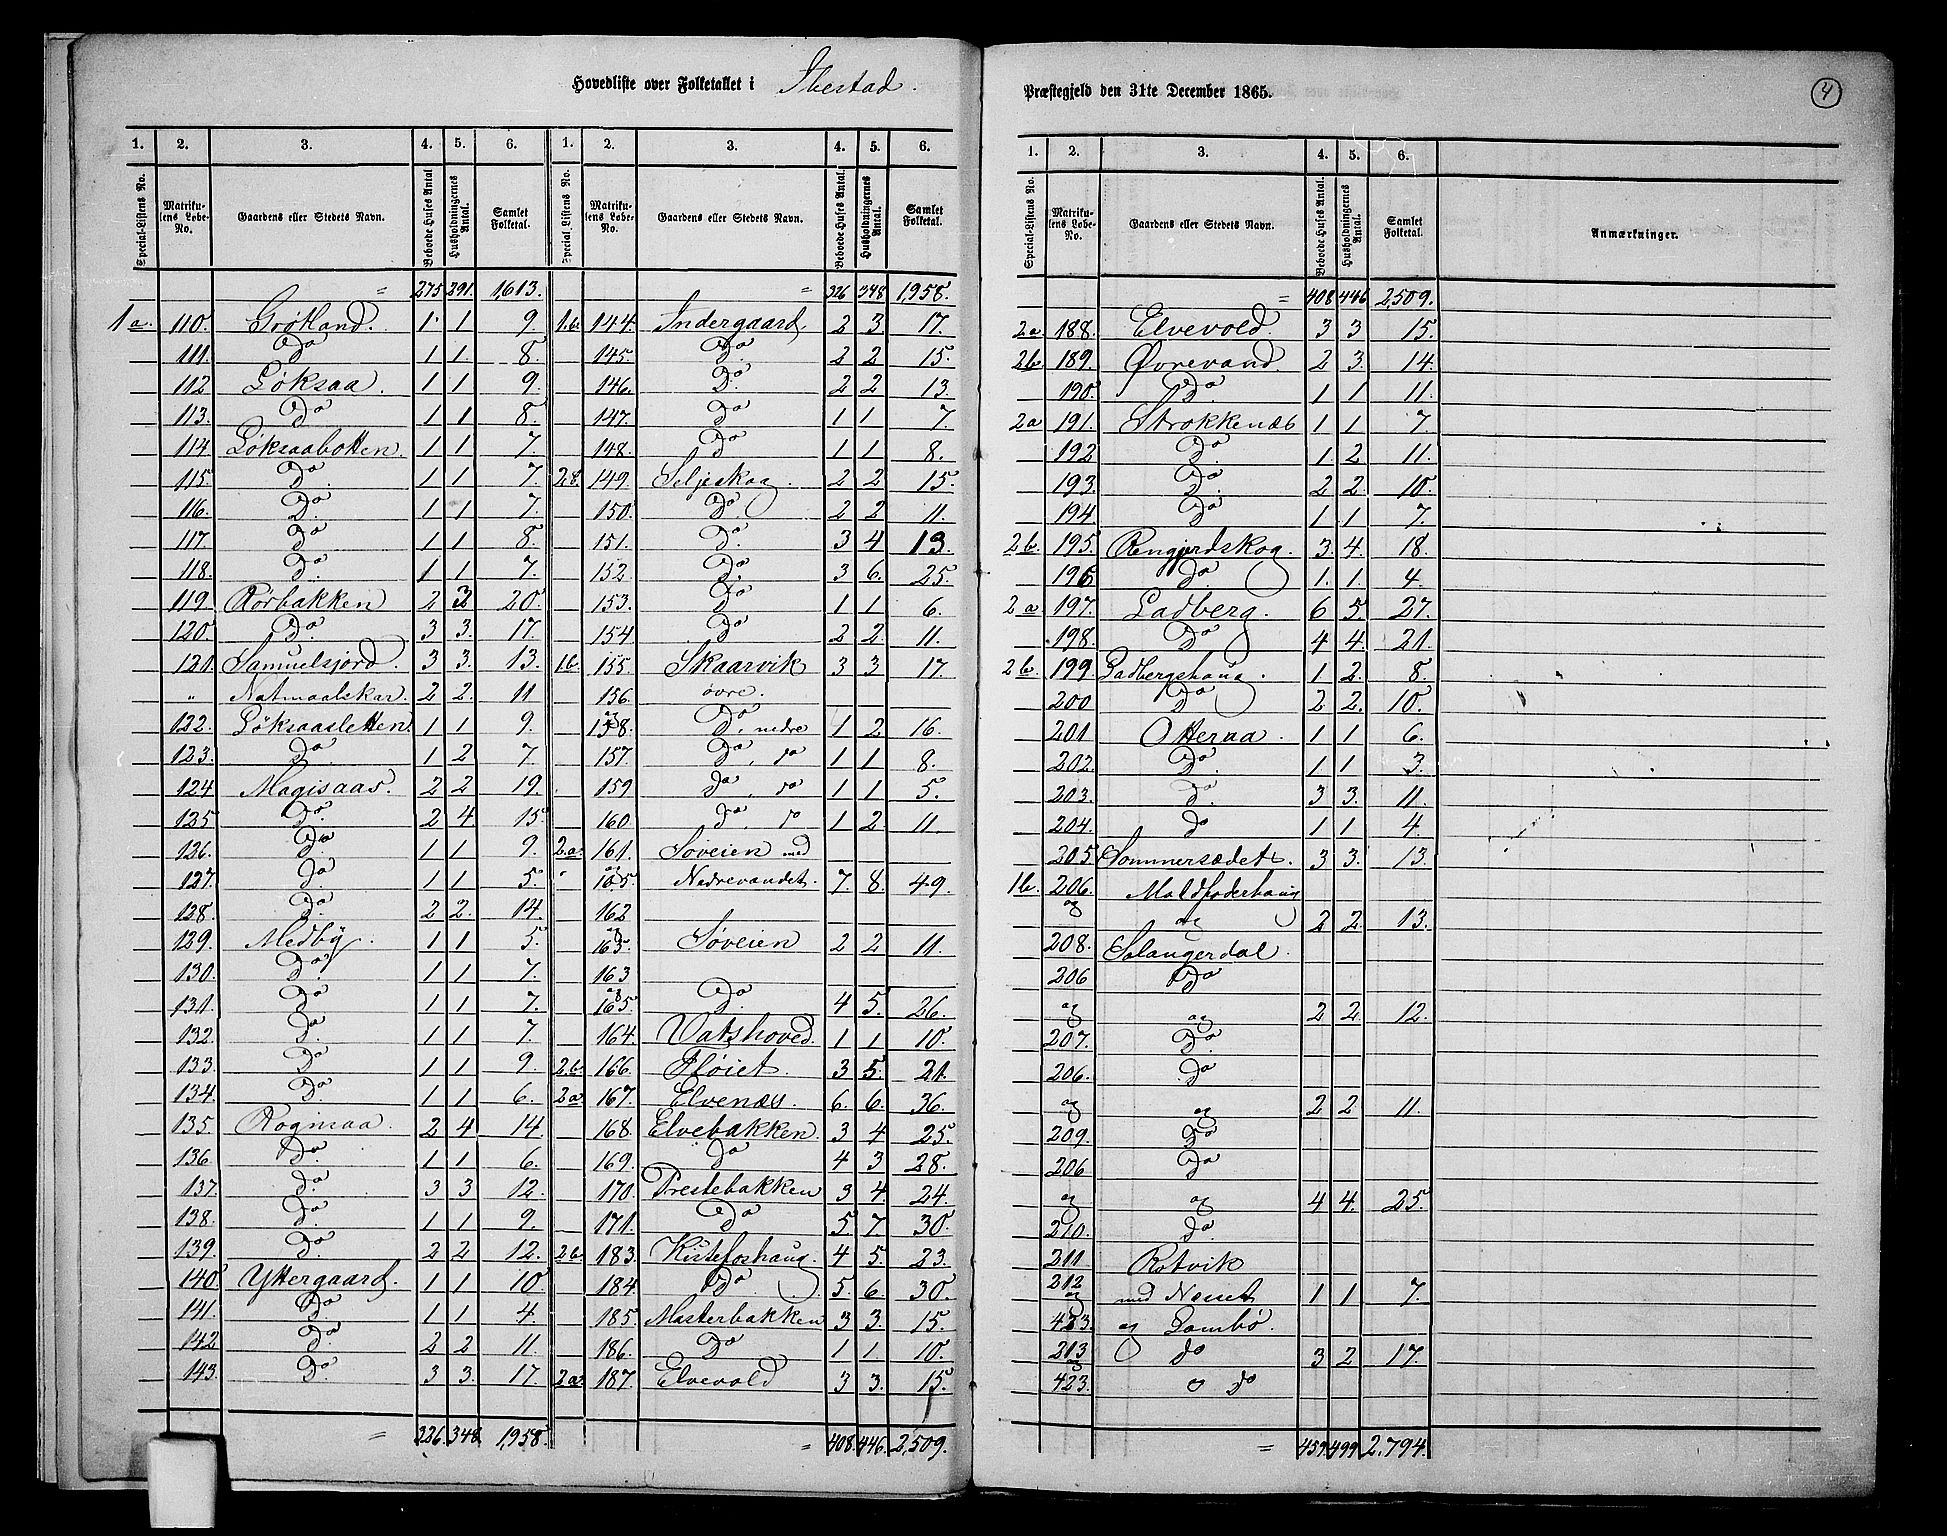 Hovedliste over Folketallet i Ibestad.
1. 2. 3. 4. 5. 6. 1. 2. 3. 4. 5. 6.
Special-Listens No. Matrikulens Løbe-No. Gaardens eller Stedets Navn. Beboede Huses Antal. Husholdningernes Antal. Samlet Folketal. Special Listens No. Matrikulens Løbe-No. Gaardens eller Stedets Navn. Beboede Huses Antal. Husholdningernes Antal. Samlet Folketal.
= 275 291. 1,613.
1a. 110. Grøkland. 1 1 9.
111. Do 1 1. 8.
112 Løksaa. 1 1 9.
113. Do 1 1. 8.
114. Løksaabotten. 1. 1 7.
115. Do. 1 1 7.
116. Do. 1 1 7.
117. Do 1 1. 8.
118. Do. 1 1. 7.
119. Rørbakken 2 3 20.
120. Do. 3 3. 17.
121. Samuelsjord. 3 3. 13.
" Natmaalskar. 2 2. 11
122. Løksaasletten. 1 1 9.
123. Do. 1 2 7.
124 Magisaas. 2 2 19.
125. Do. 2 4. 15.
126. Do 1 1 9.
127. Do. 1 1 5.
128. Do. 2 2. 14.
129. Medby. 1 1 5.
130. Do. 1 1 7.
131. Do 1 1 7.
132. Do. 1 1 7.
133. Do 1 1 9.
134. Do. 1 1 6.
135. Rogmaa. 2 4 14.
136. Do. 1 1 6.
137. Do. 3 3 12.
138. Do. 1 1 9.
139. Do. 2 2 12.
140. Yttergaard. 1 1 10.
141. Do 1 1. 4.
142 Do 2 2 11.
143. Do. 3 3. 17.
= 326. 348. 1,958.
= 326 348 1,958.
1b. 144. Indergaard. 2 3. 17.
145. Do. 2 2 15.
146. Do. 2 2 13.
147. Do 1 1 7.
148. Do 1 1 8.
2b. 149. Seljeskog. 2 2 15.
150. Do 2 2 11.
151. Do. 3 4 13.
152. Do. 3 6. 25.
153. Do. 1 1 6.
154. Do 2 2. 11.
1b. 155. Skaarvik 3 3 17.
156. øvre.
og
158. Do, nedre 1 2 16.
157 Do, do 1 1 8.
159 do, do 1 1 5.
160. do, do 1 2 11.
2.a. 161. Søveien med
og
165. Nedrevandet. 7. 8. 49.
162
og
165. Søveien 2 2 11.
163
og
165. Do. 4 5. 26.
164. Vatshoved. 1 1 10.
2b. 166. Fløiet. 3 5. 21.
2a 167. Elvenæs. 6. 6. 36.
168. Elvebakken. 3 4 25.
169. Do 4 3 28.
170. Prestebakken 3 4. 24.
171. Do 5. 7. 30.
2b. 183. Kistefoshaug. 4 5. 23.
184. Do. 5. 6. 30.
185. Masterbakken 3 3. 15.
186. Do 1 1. 10.
2a. 187. Elvevold 3 3. 15.
= 408. 446. 2,509.
Præstegjeld den 31te December 1865.
4
1. 2. 3. 4. 5. 6.
Special-Listens No. Matrikulens Løbe-No. Gaardens eller Stedets Navn. Beboede Huses Antal. Husholdningernes Antal. Samlet Folketal. Anmærkninger.
= 408 446 2,509.
2a 188. Elvevold. 3 3 15.
2b 189. Øvrevand. 2 3. 14.
190. Do. 1 1 11.
2a 191. Strokkenæs 1 1 7.
192 Do. 1. 2 11.
193. Do. 2 2. 10.
194 Do 1 1 7.
2b. 195. Rengjerdskog. 3. 4. 18.
196. Do. 1. 1. 4.
2a 197. Ladberg. 6 5. 27.
198. Do 4 4. 21.
2b. 199. Ladbergshaug. 1 2. 8.
200 Do 2 2. 10.
201 Otteraa. 1 1 6.
202. Do. 1 1 3.
203. do. 3 3. 11.
204. do 1 1 4.
205 Sommersædet. 3 3. 13.
1b. 206. Moldfoderhaug
og og 2 2. 13.
208. Solaugerdal.
206 Do
og og 2 2. 12.
207. Do.
206. Do
og og 2 2 11.
209. Do
206 Do
og og 4 4. 25.
210. do.
211 Rotvik
212
og med Næsset 1 1 7.
423. og Lombø.
213
og do 3 2 17.
423. o do
= 459. 499. 2.794.